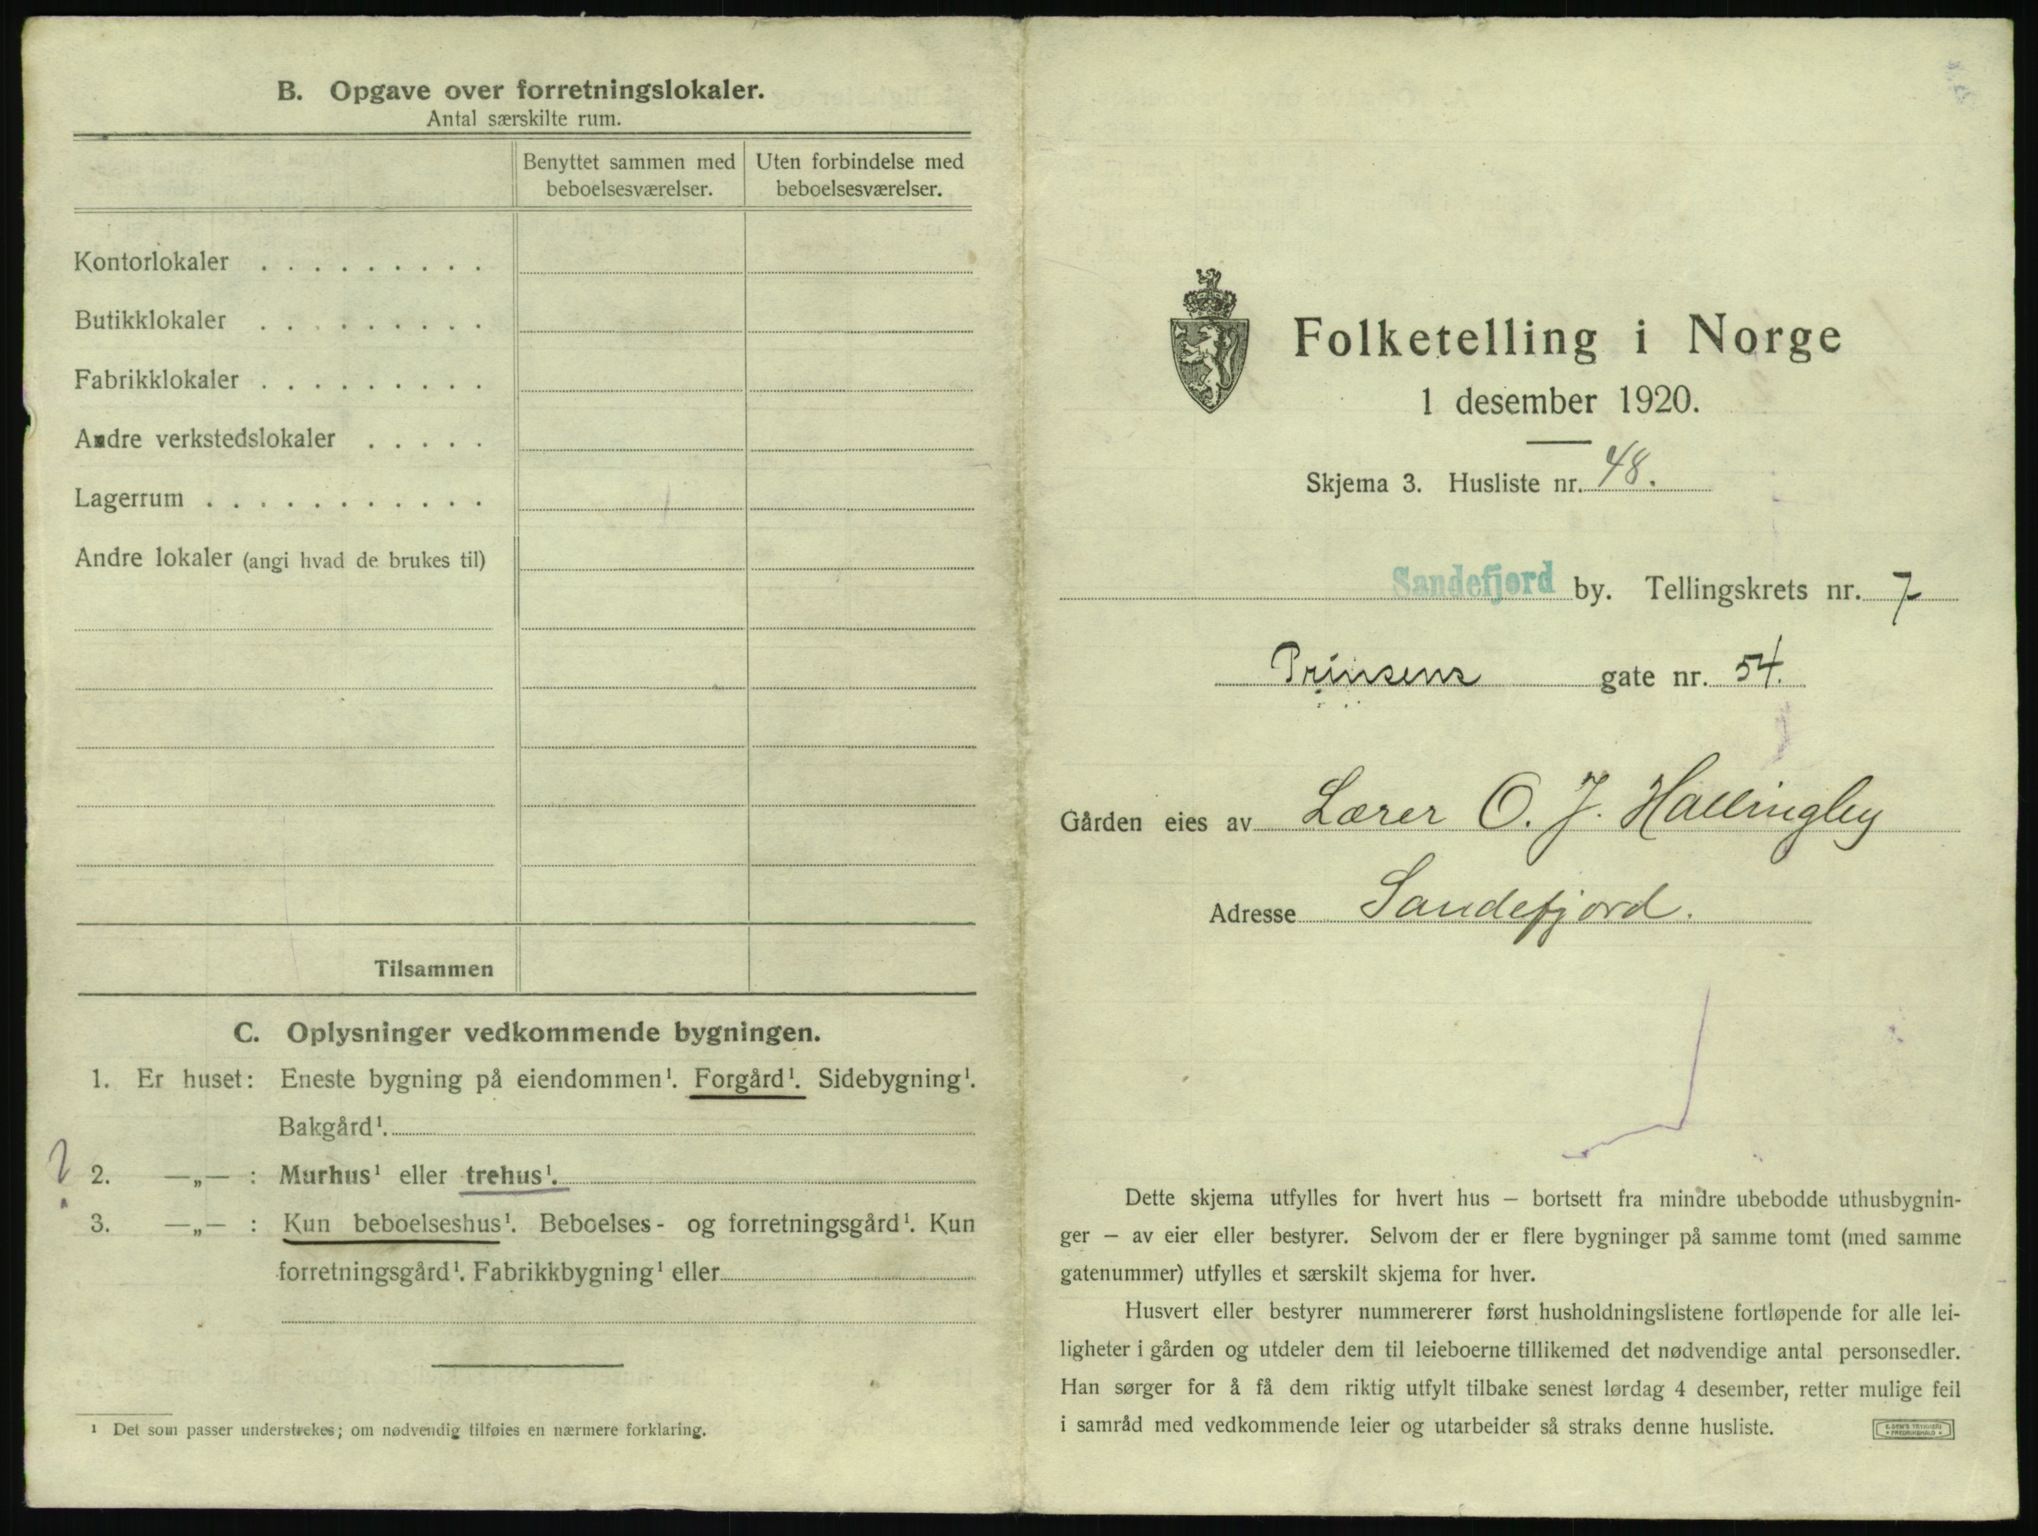 B. Opgave over forretningslokaler.
Antal særskilte rum.
Benyttet sammen med beboelsesværelser.
Uten forbindelse med beboelsesværelser.
Kontorlokaler . . . . . . . . .
Butikklokaler . . . . . . . . .
Fabrikklokaler . . . . . . . . .
Andre verkstedslokaler . . . . .
Lagerrum . . . . . . . . . . .
Andre lokaler (angi hvad de brukes til)
Tilsammen
C. Oplysninger vedkommende bygningen.
1. Er huset: Eneste bygning på eiendommen¹. Forgård¹. Sidebygning¹.
Bakgård¹.
? 2. —„— : Murhus¹ eller trehus¹.
3. —„— : Kun beboelseshus¹. Beboelses- og forretningsgård¹. Kun
forretningsgård¹. Fabrikkbygning¹ eller
¹ Det som passer understrekes; om nødvendig tilføies en nærmere forklaring.
Folketelling i Norge
1 desember 1920.
Skjema 3. Husliste nr. 48.
Sandefjord by. Tellingskrets nr. 7
Prinsens gate nr. 54.
Gården eies av Lærer O. J. Hallingby
Adresse Sandefjord.
Dette skjema utfylles for hvert hus – bortsett fra mindre ubebodde uthusbygnin-
ger – av eier eller bestyrer. Selvom der er flere bygninger på samme tomt (med samme
gatenummer) utfylles et særskilt skjema for hver.
Husvert eller bestyrer nummererer først husholdningslistene fortløpende for alle lei-
ligheter i gården og utdeler dem til leieboerne tillikemed det nødvendige antal personsedler.
Han sørger for å få dem riktig utfylt tilbake senest lørdag 4 desember, retter mulige feil
i samråd med vedkommende leier og utarbeider så straks denne husliste.